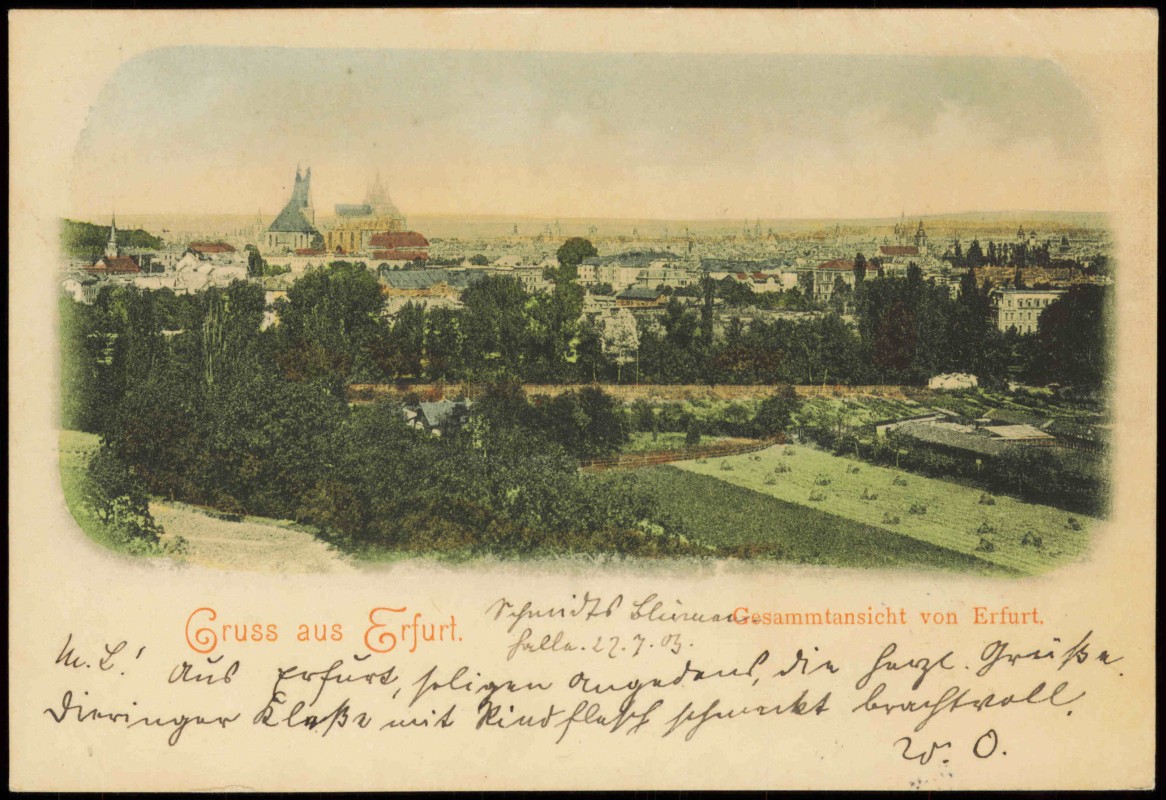 Gruss aus Erfurt.
Schmidts Blumen-
halle. 27.7.03.
Gesammtansicht von Erfurt.
M. L.! Aus Erfurt, seligen Angedens, die herzl. Grüße.
Dieringer Kleße mit Rindflesch schmeckt brachtvoll.
W. O.